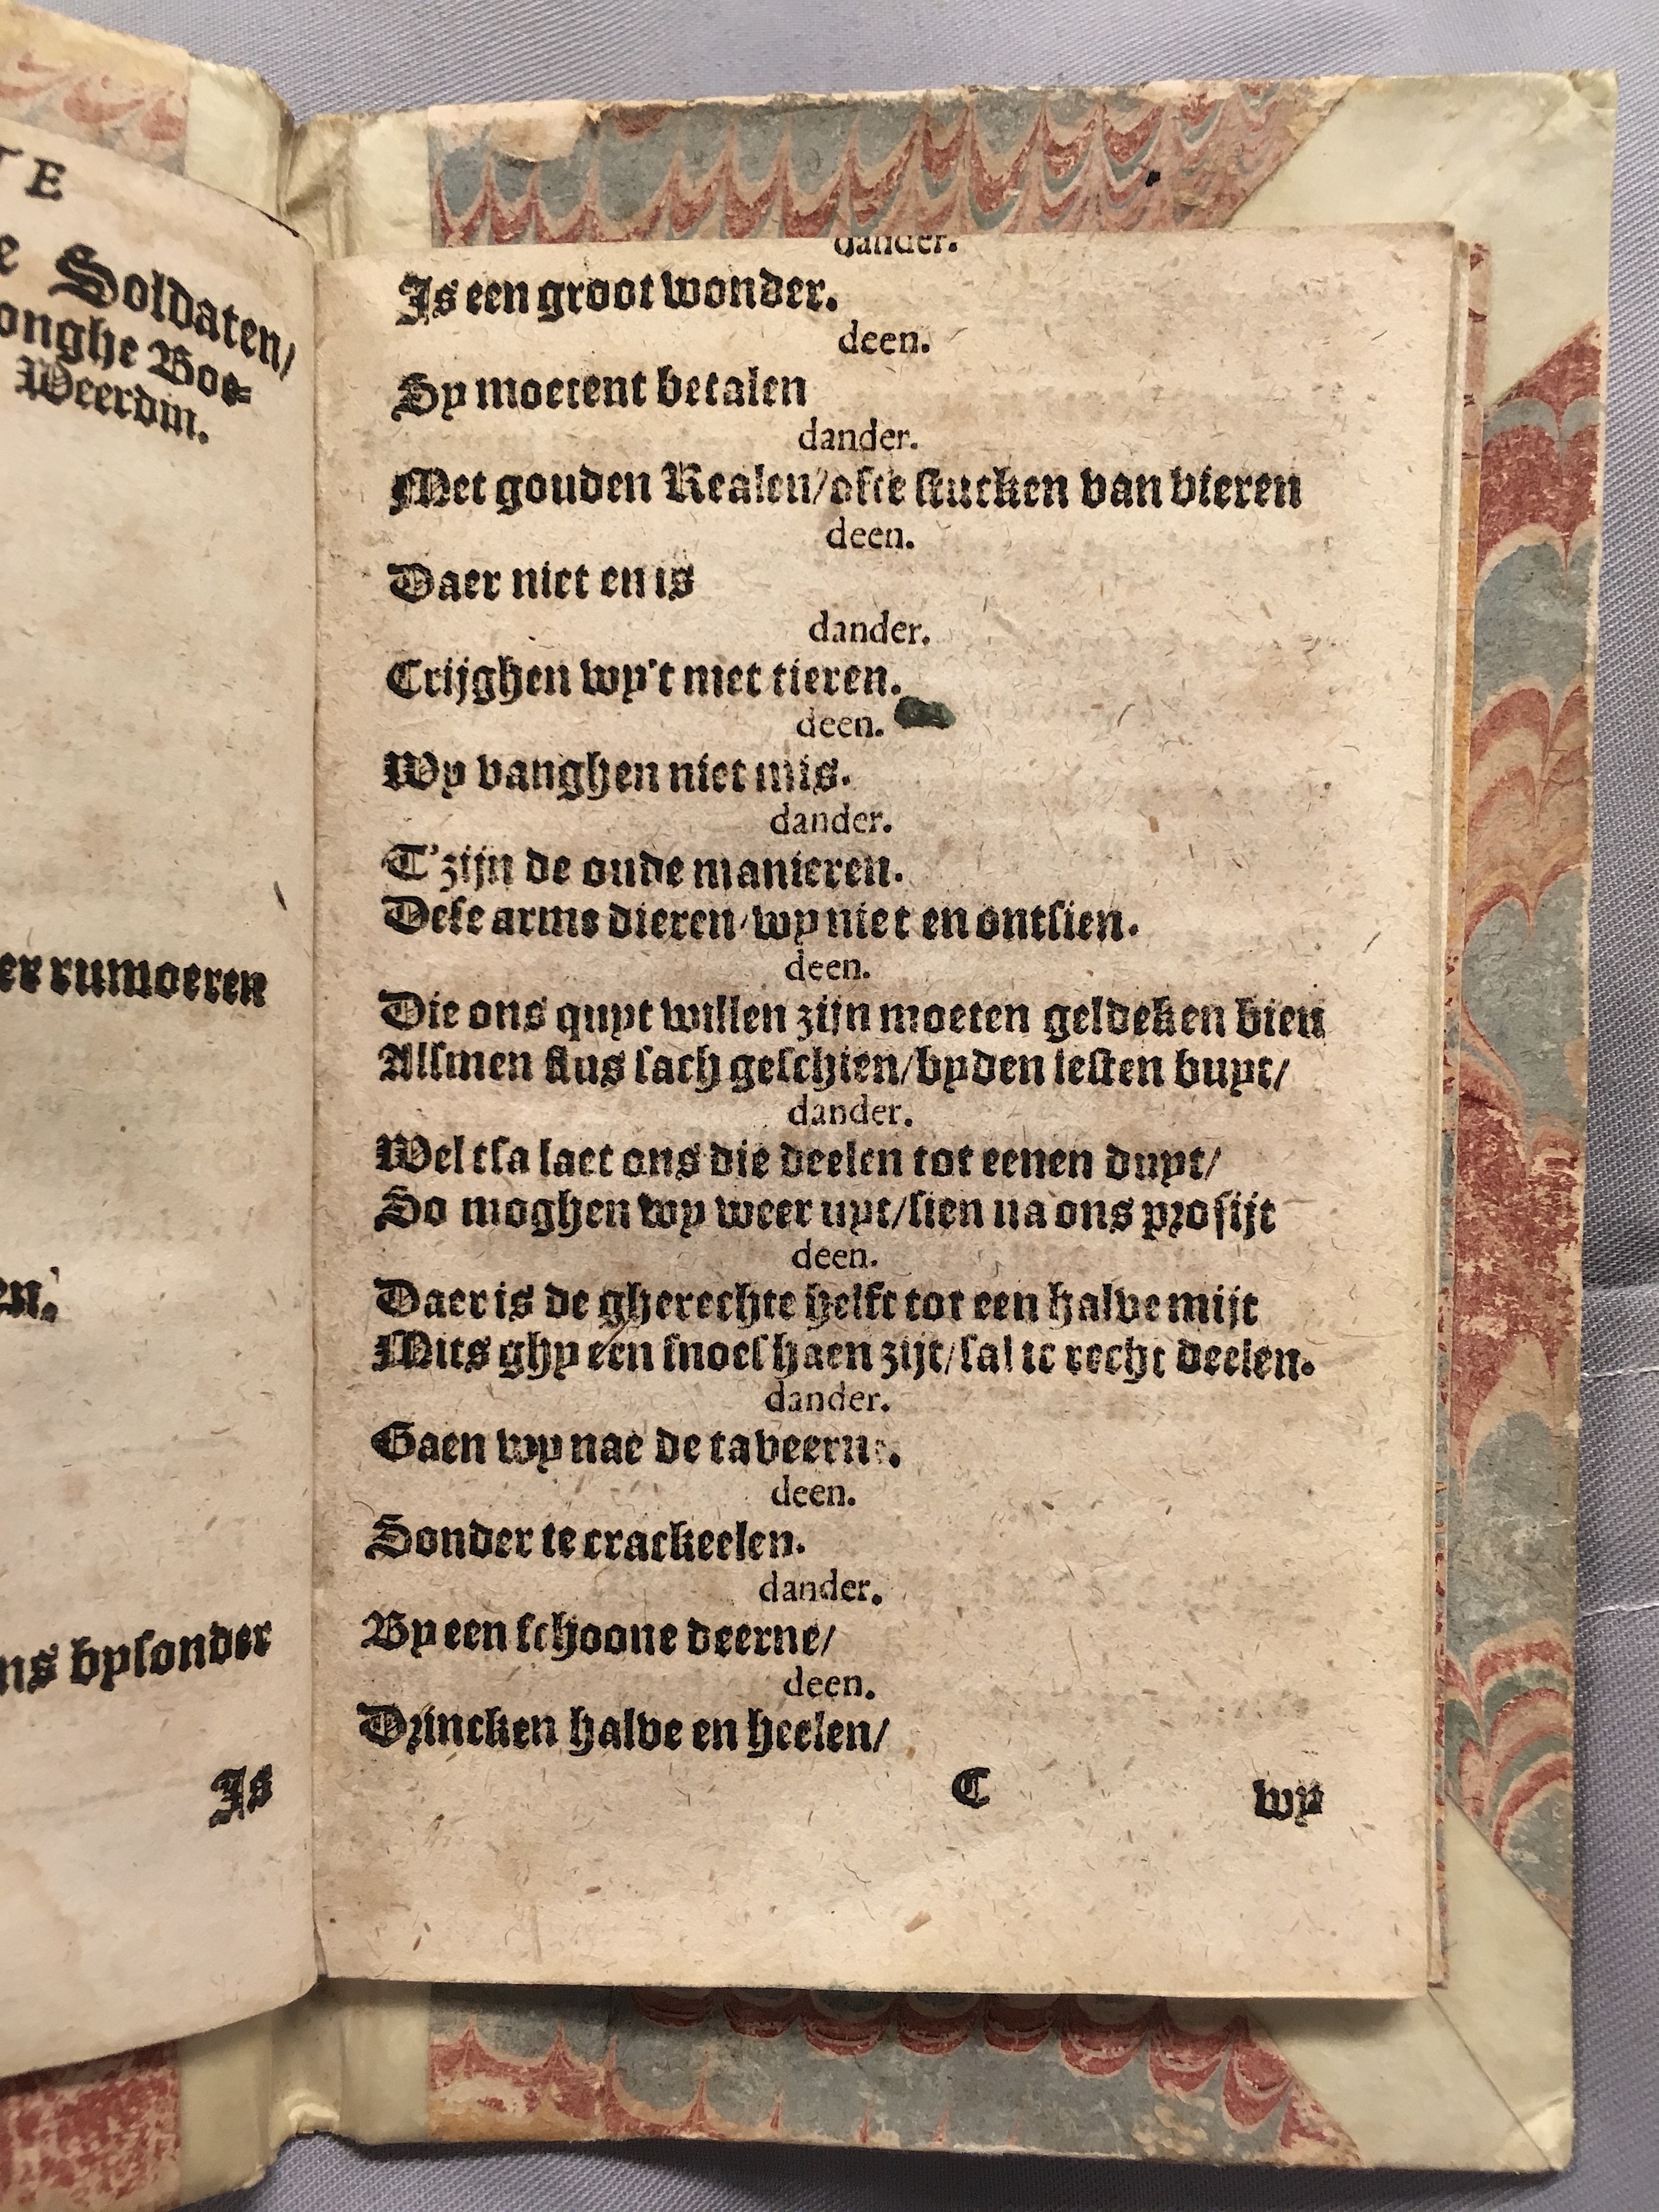 TE
e Soldaten/
onghe Boe-
Weerdin.
er rumoeren
en.
ns bysonder
Is
dander.
Is een groot wonder.
deen.
Sy moetent betalen
dander.
Met gouden Realen/ofte stucken van vieren
deen.
Daer niet en is
dander.
Crijghen wy't met tieren.
deen.
Wy vanghen niet mis.
dander.
T'zijn de oude manieren.
Dese arme dieren/wy niet en ontsien.
deen.
Die ons quyt willen zijn moeten geldeken bien
Alsmen flus sach geschien/byden lesten buyt/
dander.
Wel tsa laet ons die deelen tot eenen duyt/
So moghen wy weer uyt/sien na ons profijt
deen.
Daer is de gherechte helft tot een halve mijt
Mits ghy een snoeshaen zijt/sal ic recht deelen.
dander.
Gaen wy nae de taveerne.
deen.
Sonder te crackeelen.
dander.
By een schoone deerne/
deen.
Drincken halve en heelen/
C wy